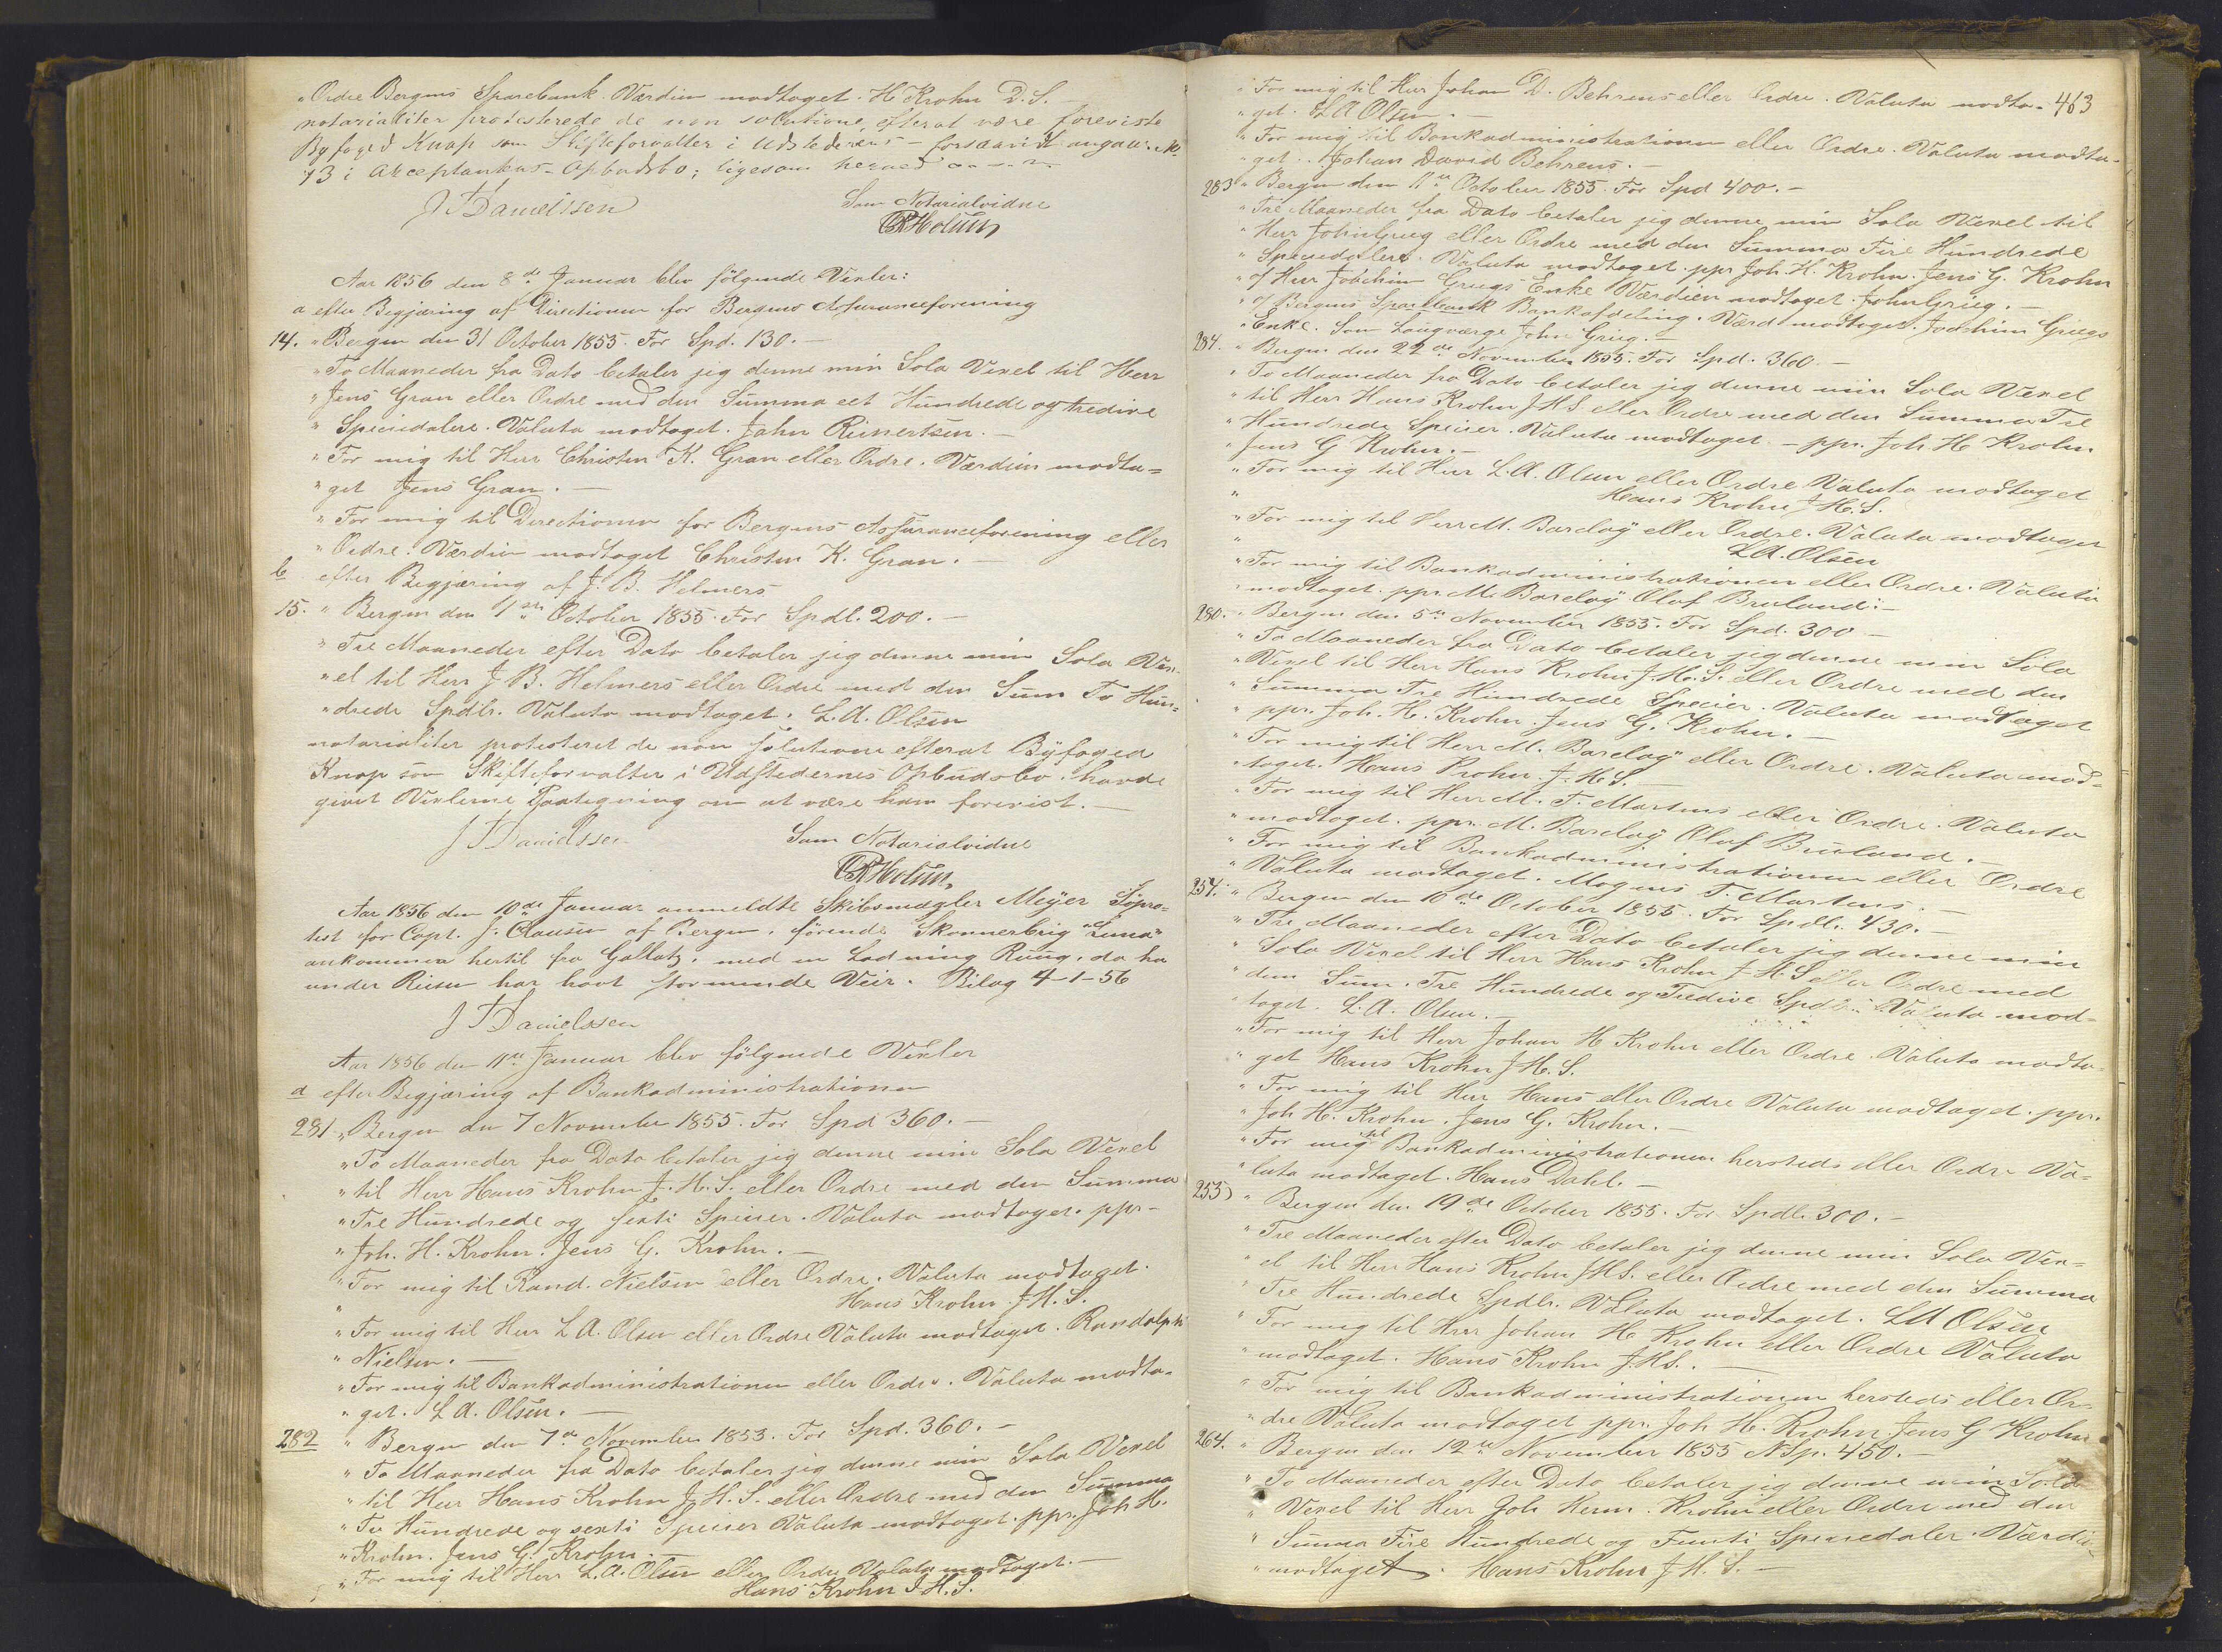 "Ordre Bergens Sparebank. Værdien modtaget. H Krohn D. S.
notarialiter protesterede de non solutione, efterat være foreviste
Byfoged Knap som Skifteforvalter i Udstederens - forsaavidt angaaer No
13 i Akceptantens Opbudsbo; ligesom herved
J F Danielssen
Som Notarialvidne
Holum
Aar 1856 den 8de Januar blev følgende Vexler:
a efter Begjæring af Directionen for Bergens Assuranceforening
14. "Bergen den 31 October 1855. For Spd. 130. -
"To Maaneder fra Dato betaler jeg denne min Sola Vexel til Herr
"Jens Gran eller Ordre med den Summa eet Hundrede og tredive
"Speciedalere. Valuta modtaget. John Reinertsen. -
"For mig til Herr Christen K. Gran eller Ordre. Værdien modta=
"get Jens Gran. -
"For mig til Directionen for Bergens Assuranceforening eller
"Ordre. Værdien modtaget Christen K. Gran. -
b efter Begjæring af J. B. Helmers
15. "Bergen den 1ste October 1855. For Spdl. 200. -
"Tre Maaneder efter Dato betaler jeg denne min Sola Vex-
"el til Herr J B. Helmers eller Ordre med den Sum To Hun=
"drede Spdlr. Valuta modtaget. L. A. Olsen
notarialiter protesteret de non solutione efterat Byfoged
Knap som Skifteforvalter i Udstedernes Opbudsbo havde
givet Vexlerne Paategning om at være ham forevist. -
J F Danielssen
Som Notarialvidne
Holum
Aar 1856 den 10de Januar anmeldte Skibsmægler Meyer Søpro=
test for Capt. J. Clausen af Bergen, førende Skonnerbrig "Luna"
ankommen hertil fra Gallatz, med en Ladning Rug, da han
under Reisen har havt stormende Veir. Bilag 4-1-56
J F Danielssen
Aar 1856 den 11te Januar blev følgende Vexler
a efter Begjæring af Bankadministrationen
281 "Bergen den 7 November 1855. For Spd 360. -
"To Maaneder fra Dato betaler jeg denne min Sola Vexel
"til Herr Hans Krohn J. H. S. eller Ordre med den Summa
"Tre Hundrede og sexti Specier. Valuta modtaget. ppr-
"Joh. H. Krohn. Jens G. Krohn. -
"For mig til Rand. Nielsen eller Ordre. Valuta modtaget.
" Hans Krohn J. H. S.
"For mig til Herr L A. Olsen eller Ordre Valuta modtaget. Randolph
"Nielsen. -
"For mig til Bankadministrationen eller Ordre. Valuta modta-
"get. L A. Olsen. -
282 "Bergen den 7de November 1855. For Spd. 360. -
"To Maaneder fra Dato betaler jeg denne min Sola Vexel
"til Herr Hans Krohn J. H. S. eller Ordre med den Summa
"Tre Hundrede og sexti Specier Valuta modtaget. ppr. Joh H.
"Krohn. Jens G. Krohn. -
"For mig til Herr L. A. Olsen eller Ordre Valuta modtaget. -
Hans Krohn J. H. S.
463
"For mig til Herr Johan D. Behrens eller Ordre. Valuta modta-
"get. L A Olsen. -
"For mig til Bankadministrationen eller Ordre. Valuta modta-
"get. Johan David Behrens. -
283 "Bergen den 11te October 1855. For Spd 400. -
"Tre Maaneder fra Dato betaler jeg denne min Sola Vexel til
"Herr John Grieg eller Ordre med den Summa Fire Hundrede
"Speciedalere. Valuta modtaget. ppr Joh. H. Krohn. Jens G. Krohn
"o/ Herr Joachim Griegs Enke Værdien modtaget. John Grieg. -
"o/ Bergens Sparebank Bankafdeling. Værd modtaget. Joachim Griegs
"Enke. Som Laugværge John Grieg. -
284. "Bergen den 22de November 1855. For Spd. 360. -
"To Maaneder fra Dato betaler jeg denne min Sola Vexel
"til Herr Hans Krohn J H S. eller Ordre med den Summa Tre
"Hundrede Specier. Valuta modtaget - ppr. Joh. H Krohn.
"Jens G Krohn. -
"For mig til Herr L. A. Olsen eller Ordre Valuta modtaget
" Hans Krohn J H. S.
"For mig til Herr M. Barclay eller Ordre. Valuta modtaget
" L A. Olsen
"For mig til Bankadministrationen eller Ordre. Valuta
"modtaget. ppr. M. Barclay Olaf Bruland. -
280. "Bergen den 5te November 1855. For Spd. 300 -
"To Maaneder fra Dato betaler jeg denne min Sola
"Vexel til Herr Hans Krohn J. H. S. eller Ordre med den
"Summa Tre Hundrede Specier. Valuta modtaget
"ppr. Joh. H. Krohn. Jens G. Krohn. -
"For mig til Herr M. Barclay eller Ordre. Valuta mod=
"taget. Hans Krohn. J. H. S. -
"For mig til Herr M. T. Martens eller Ordre. Valuta
"modtaget. ppr. M. Barclay Olaf Bruland. -
"For mig til Bankadministrationen eller Ordre
"Valuta modtaget. Mogens T. Martens. -
254. "Bergen den 10de October 1855. For Spdl. 430. -
"Tre Maaneder efter Dato betaler jeg denne min
"Sola Vexel til Herr Hans Krohn J. H. S eller Ordre med
"den Sum. Tre Hundrede og Tredive Spdlr. Valuta mod=
"taget. L. A. Olsen. -
"For mig til Herr Johan H Krohn eller Ordre. Valuta modta-
"get Hans Krohn J H. S.
"For mig til Herr Hans eller Ordre Valuta modtaget. ppr.
"Joh H. Krohn. Jens G. Krohn. -
"For mig til Bankadministrationen hersteds eller Ordre Va=
"luta modtaget. Hans Dahl. -
255) "Bergen den 19de October 1855. For Spdlr 300. -
"Tre Maaneder efter Dato betaler jeg denne min Sola Vex=
"el til Herr Hans Krohn J H S. eller Ordre med den Summa
"Tre Hundrede Spdlr. Valuta modtaget. L A Olsen
"For mig til Herr Johan H Krohn eller Ordre Valuta
"modtaget. Hans Krohn J. H S. -
"For mig til Bankadministrationen hersteds eller Or-
"dre Valuta modtaget ppr. Joh H. Krohn Jens G Krohn
264. "Bergen den 12te November 1855 N Sp. 450. -
"To Maaneder efter Dato betaler jeg denne min Sola
"Vexel til Herr Joh Herm. Krohn eller Ordre med den
"Summa Fire Hundrede og Femti Speciedaler. Værdi-
"modtaget. Hans Krohn J H. S. -